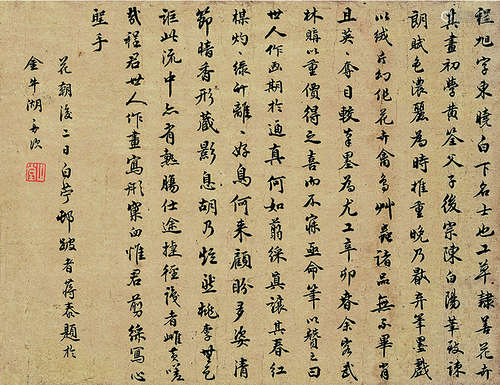 程旭字東曉白下名士也工草隸善花卉
其畫初學黃荃父子後宗陳白陽筆致疎
朗賦色濃麗為時推重晚乃厭弃筆墨戲
以絨片幻作花卉禽鳥艸蟲諸品無不畢肖
且英奪目較筆墨為尤工辛卯春余客武
林購以重價得之喜而不寐亟命筆以贊之曰
世人作画期於逼真何如剪綵真讓其春紅
棋灼綠竹離離好鳥何來顧盼多姿清
節暗香形藏影息胡乃炬熟桃李世乞
詎此流中亦有熱腸仕途捷徑後者雌黃嗟
哉程君世人作畫寫形窠臼惟君剪綵寫心
聖手
花朝後二日白苧邨 者蔣泰題於
金牛湖舟次